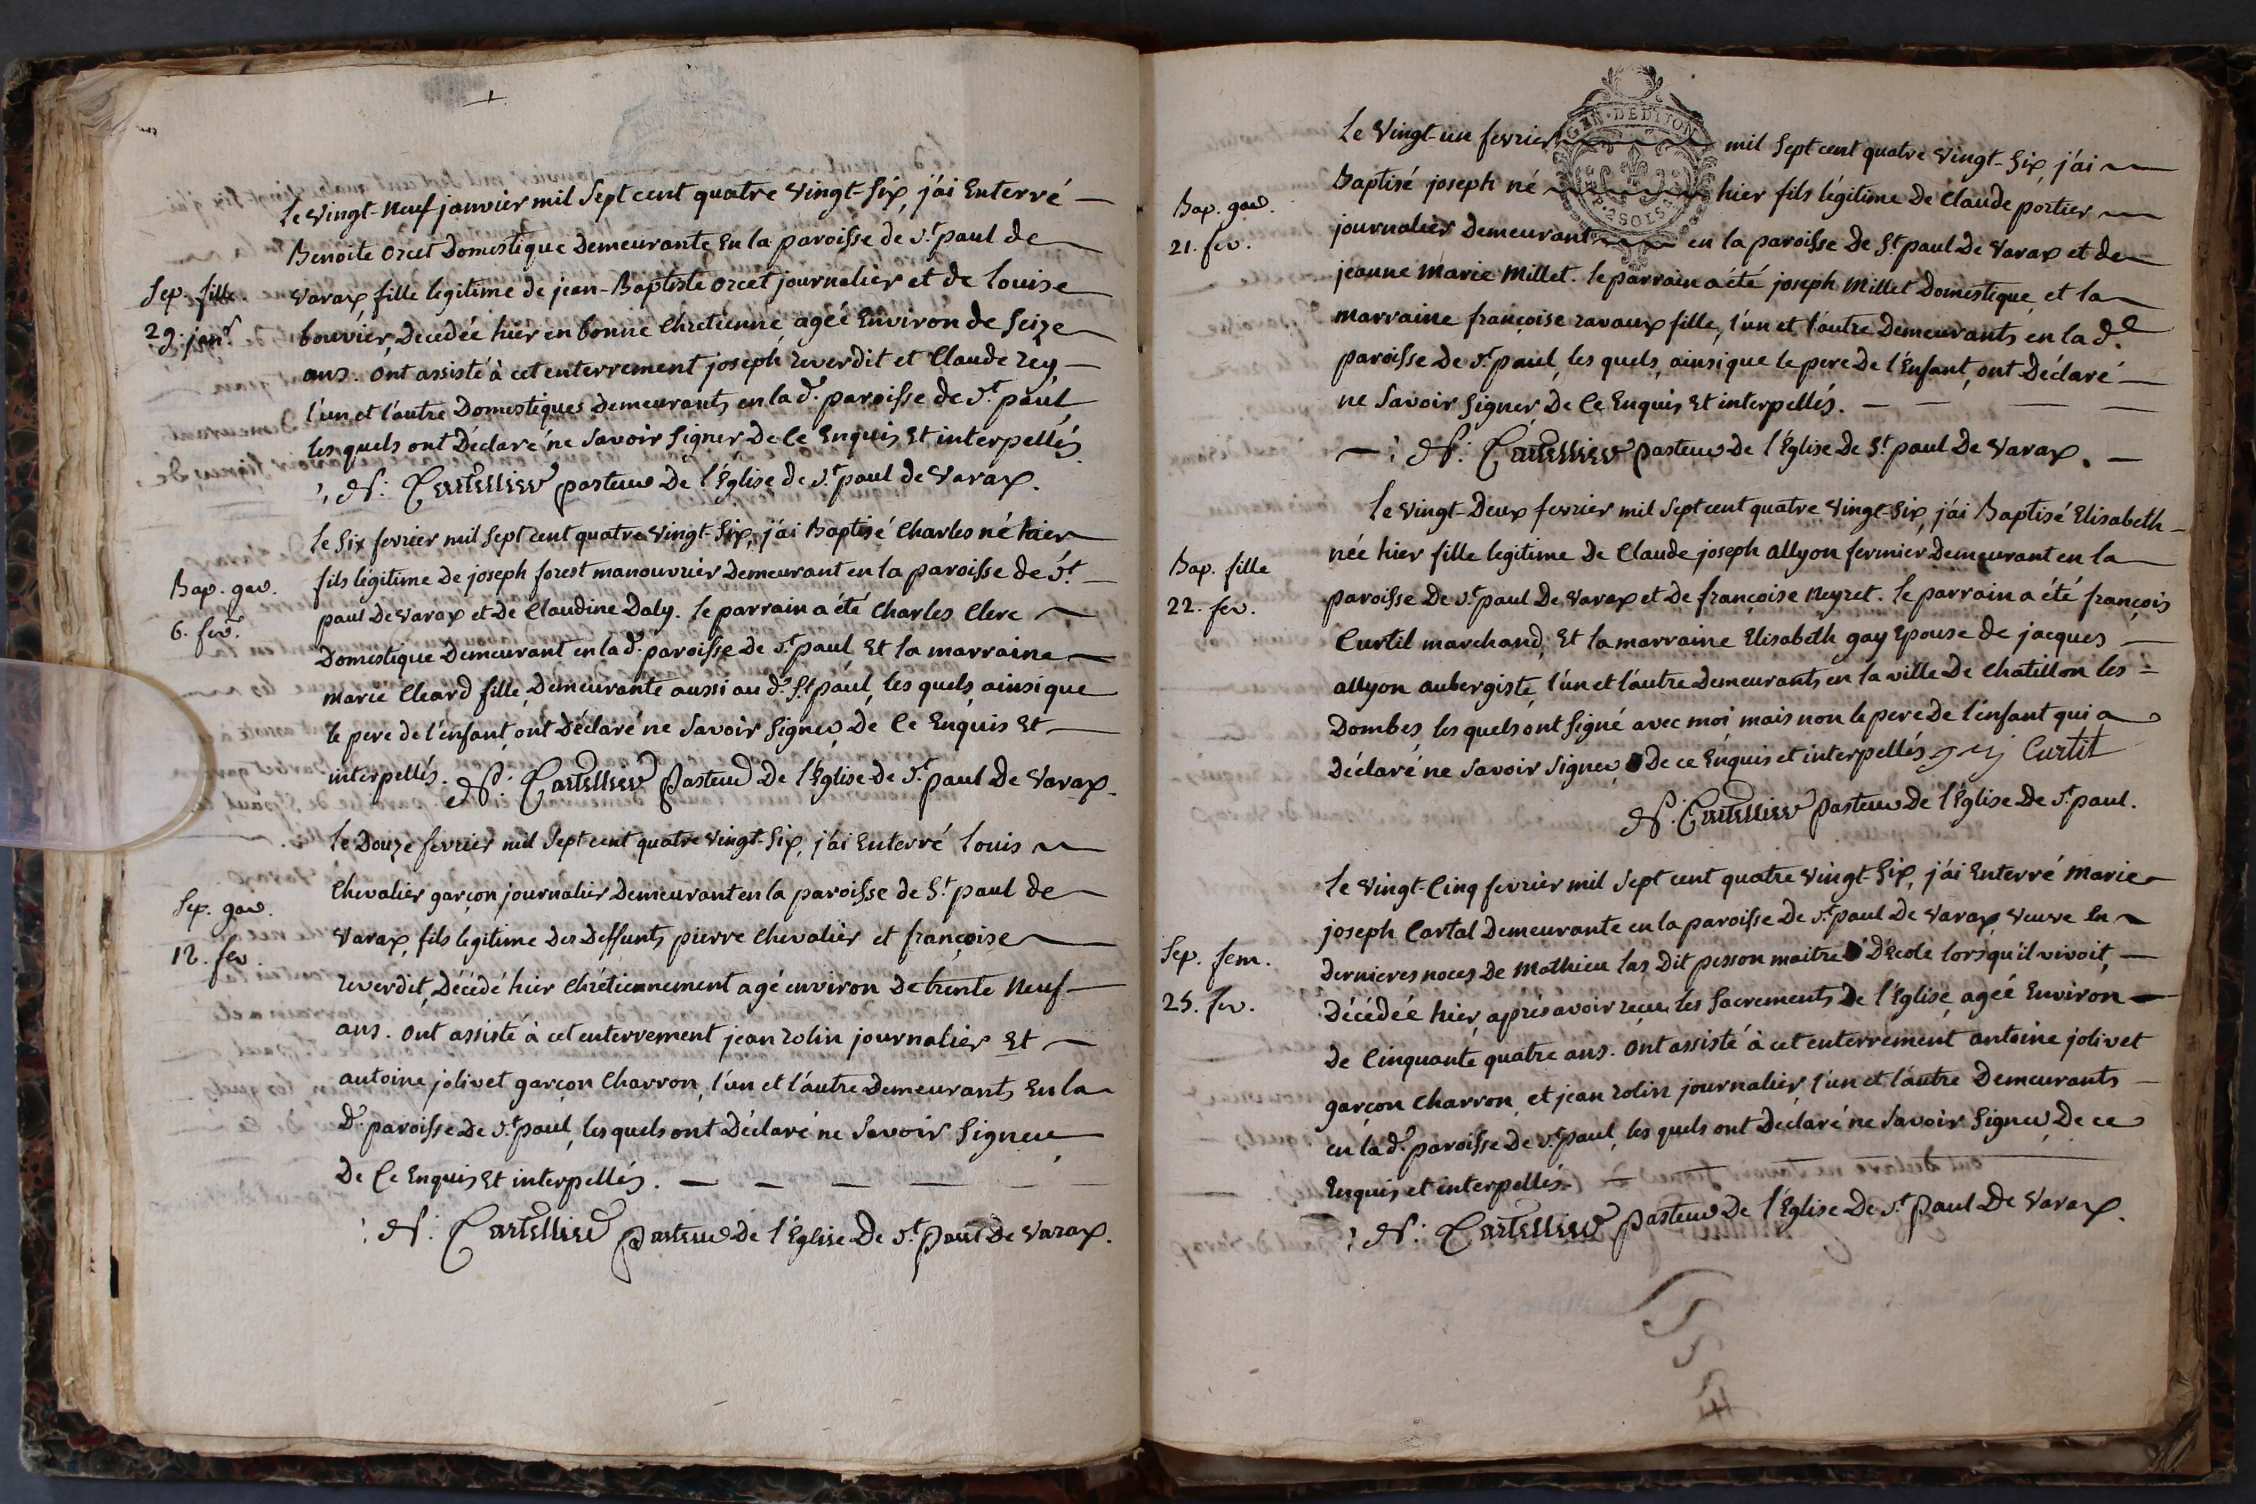 Le vingt-neuf janvier mil sept cent quatre vingt-six, j'ai enterré
Benoite orcet domestique demeurante en la paroisse de st. paul de
Sep. fille.
29. janr.
varax, fille legitime de jean-Baptiste orcet journalier et de louise
bouvier, décedée hier en bonne chretienne, agée environ de seize
ans. ont assisté à cet enterrement joseph reverdit et claude rey
l'un et l'autre domestiques demeurants en la d. paroisse de st. paul,
les quels ont déclaré ne savoir signer de ce enquis et interpellés.
pasteur de l'église de st. paul de varax.
Le six fevrier mil sept cent quatre vingt-six, j'ai Baptisé charles né hier
Bap. gar.
6. fevr.
fils légitime de joseph forest manouvrier demeurant en la paroisse de st.
paul de varax et de claudine Daly. le parrain a été charles clerc
domestique demeurant en la d. paroisse de st. paul, et la marraine
marie cleard fille, demeurante aussi au d. st paul, les quels, ainsi que
le pere de l'enfant, ont déclaré ne savoir signer, de ce enquis et
interpellés. pasteur de l'église de st. paul de varax.
Le douze fevrier mil sept cent quatre vingt-six, j'ai enterré louis
Sep. gar.
12. fev.
chevalier garçon journalier demeurant en la paroisse de St. paul de
varax, fils legitime des deffunts pierre chevalier et françoise
reverdit, décédé hier chrétiennement agé environ de trente neuf
ans. ont assisté à cet enterrement jean rolin journalier et
antoine jolivet garçon charron, l'un et l'autre demeurants en la
d. paroisse de st. paul, les quels ont déclaré ne savoir signer,
de ce enquis et interpellés.
pasteur de l'église de st. paul de varax.
GEN. DE DIJON
Le vingt-un fevrier mil sept cent quatre vingt-six, j'ai
Bap. gar.
21. fev.
Baptisé joseph né hier fils légitime de claude portier
journalier demeurant en la paroisse de St. paul de varax et de
jeanne marie millet. le parrain a été joseph millet domestique, et la
marraine françoise ravaux fille, l'un et l'autre demeurants en la de.
paroisse de st. paul, les quels, ainsi que le pere de l'enfant, ont déclaré
ne savoir signer de ce enquis et interpellés.
pasteur de l'église de St. paul de varax.
Le vingt-deux fevrier mil sept cent quatre vingt-six, j'ai Baptisé Elisabeth
Bap. fille
22. fev.
née hier fille legitime de claude joseph allyon fermier demeurant en la
paroisse de st. paul de varax et de françoise neyret. le parrain a été françois
curtil marchand, et la marraine Elisabeth gay épouse de jacques
allyon aubergiste, l'un et l'autre demeurants en la ville de chatillon les
Dombes, les quels ont signé avec moi mais non le pere de l'enfant qui a
déclaré ne savoir signer, de ce enquis et interpellés. Curtil
pasteur de l'église de st. paul.
Le vingt-cinq fevrier mil sept cent quatre vingt-six, j'ai enterré marie
Sep. fem.
25. fev.
joseph cartal demeurante en la paroisse de st. paul de varax, veuve en
dernieres noces de mathieu las dit pesson maitre d'école lorsqu'il vivoit,
décédée hier, après avoir reçu les sacrements de l'église, agée environ
de cinquante quatre ans. ont assisté à cet enterrement antoine jolivet
garçon charron, et jean rolin journalier, l'un et l'autre demeurants
en la d. paroisse de st. paul, les quels ont déclaré ne savoir signer, de ce
enquis et interpellés.
pasteur de l'église de st. paul de varax.